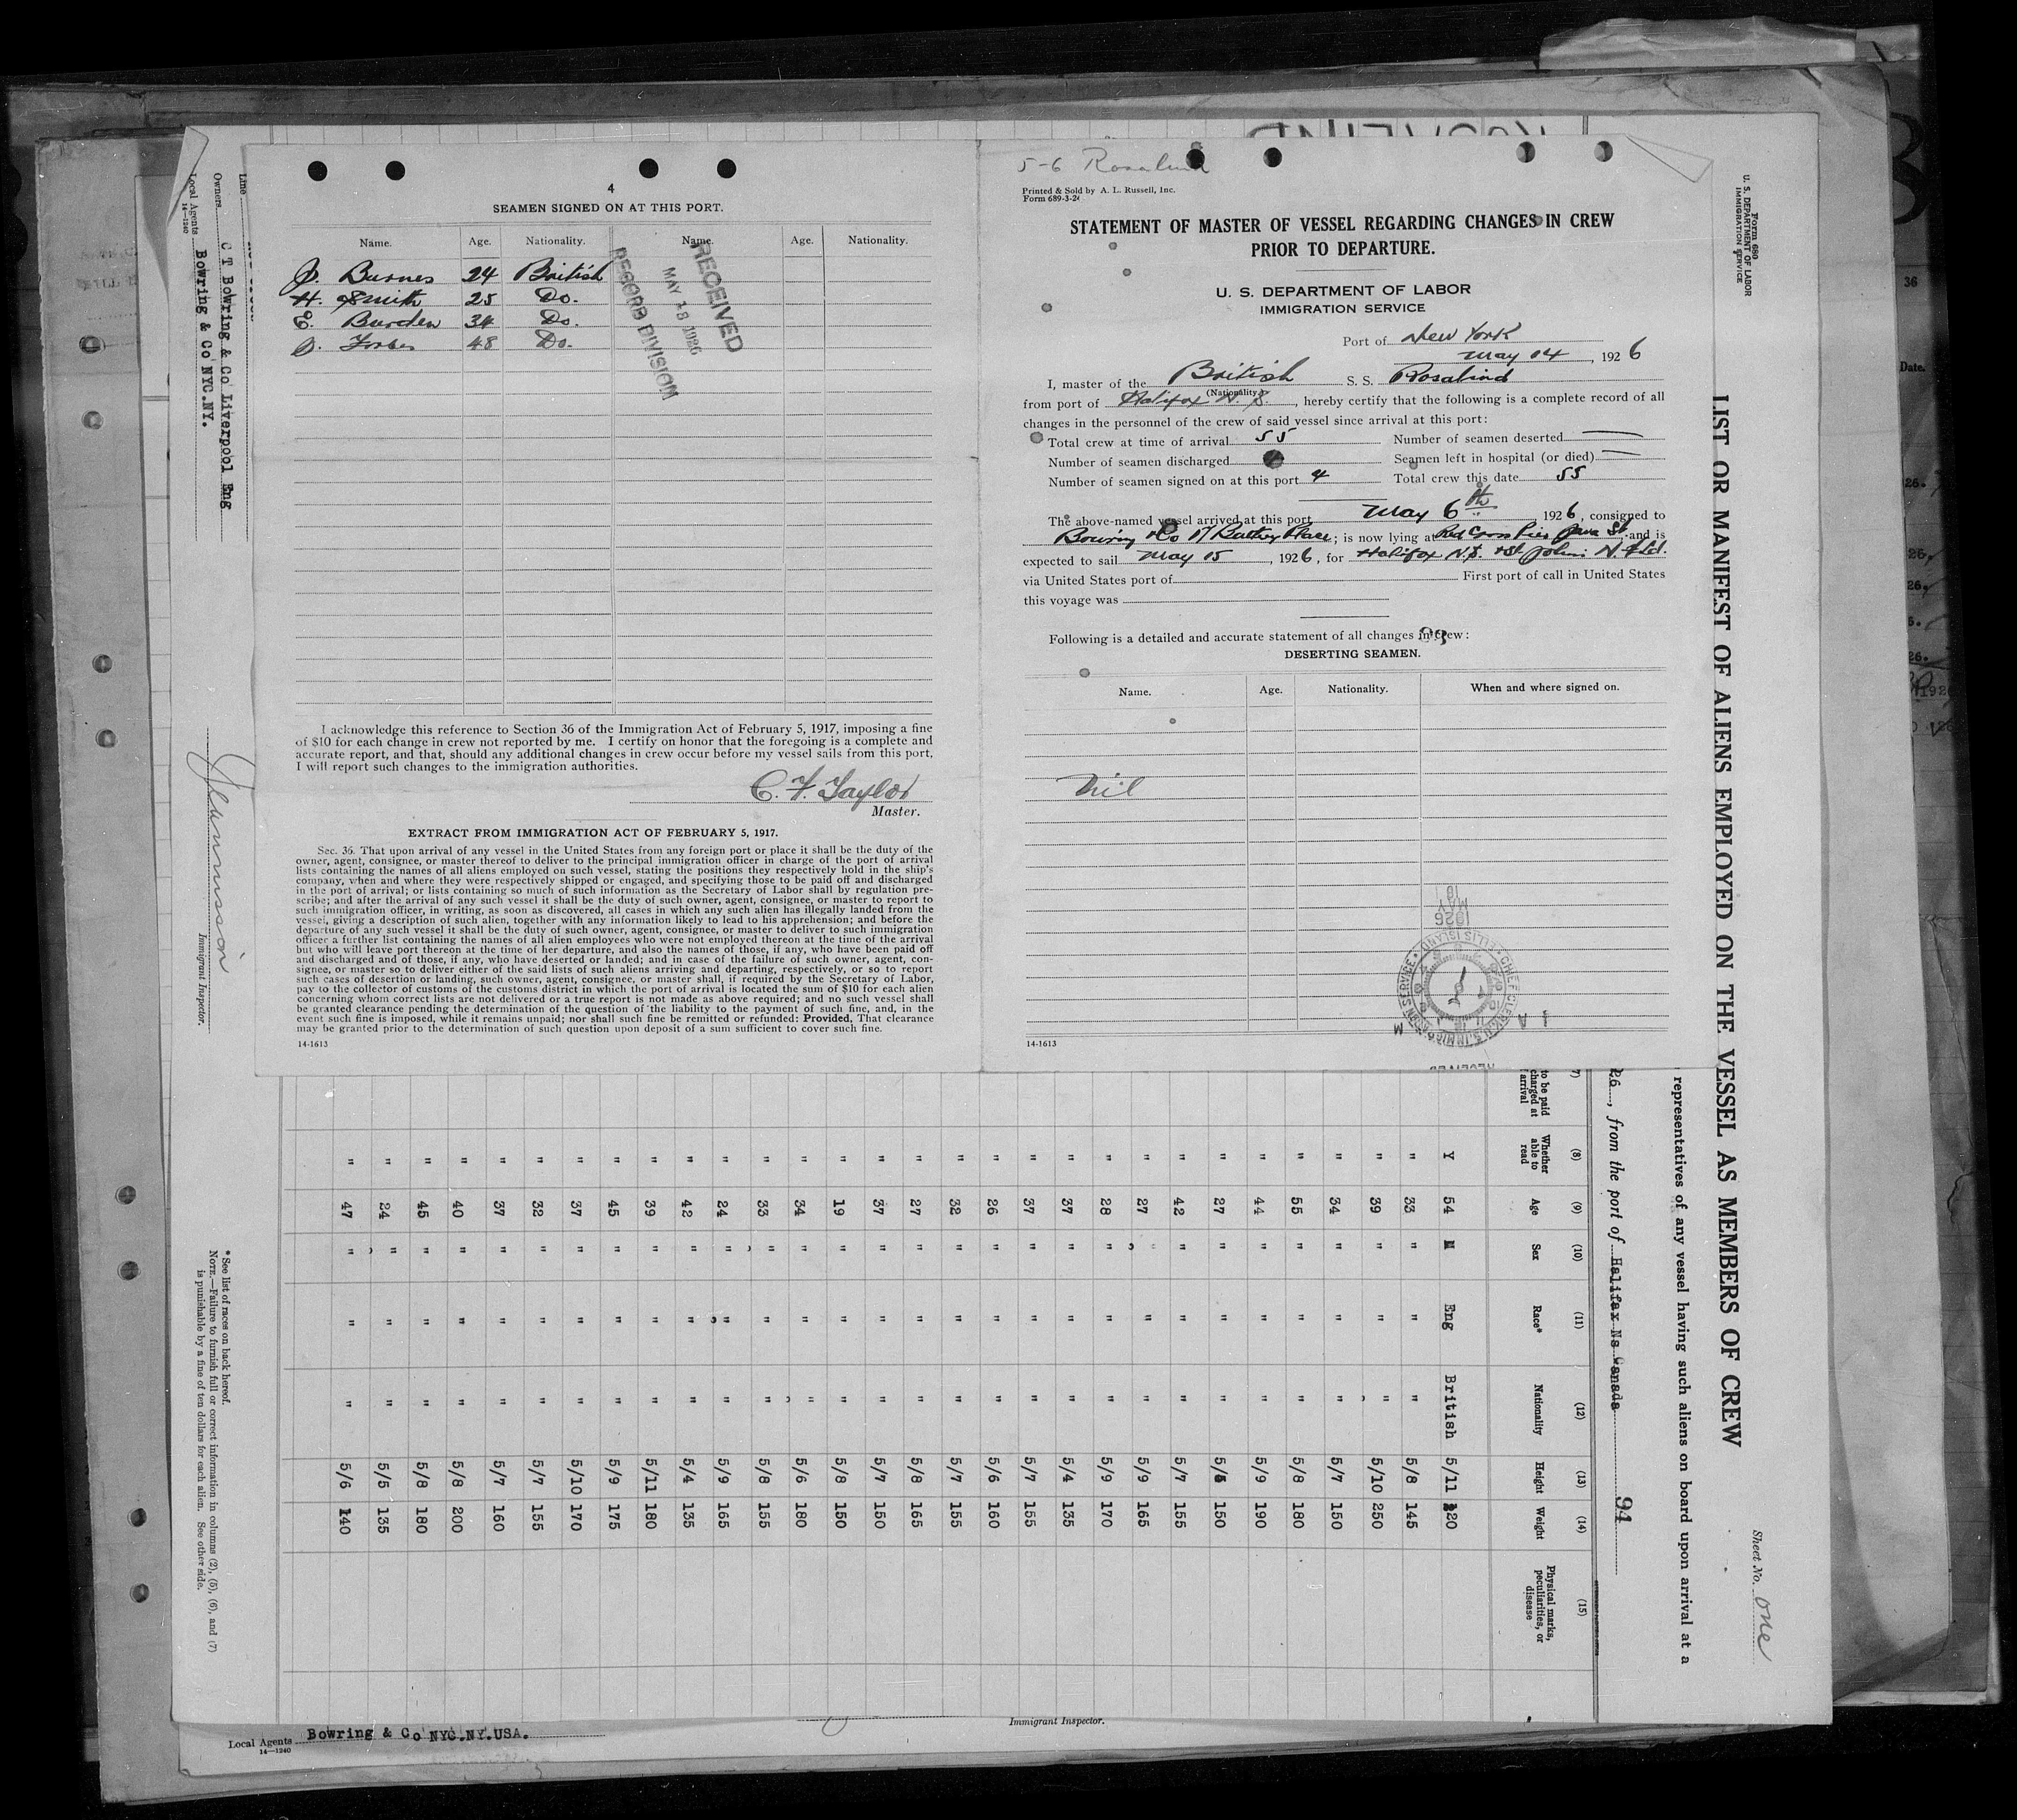 4
SEAMEN SIGNED ON AT THIS PORT.
Name. Age. Nationality. Name. Age. Nationality.
J. Burnes 24 British
H. Smith 25 Do.
E. Burden 34 Do.
J. Forbes 48 Do.
RECEIVED
MAY 18 1926
RECORD DIVISION
I acknowledge this reference to Section 36 of the Immigration Act of February 5, 1917, imposing a fine
of $10 for each change in crew not reported by me. I certify on honor that the foregoing is a complete and
accurate report, and that, should any additional changes in crew occur before my vessel sails from this port,
I will report such changes to the immigration authorities.
C. F. Taylor
Master.
EXTRACT FROM IMMIGRATION ACT OF FEBRUARY 5, 1917.
Sec. 36. That upon arrival of any vessel in the United States from any foreign port or place it shall be the duty of the
owner, agent, consignee, or master thereof to deliver to the principal immigration officer in charge of the port of arrival
lists containing the names of all aliens employed on such vessel, stating the positions they respectively hold in the ship's
company, when and where they were respectively shipped or engaged, and specifying those to be paid off and discharged
in the port of arrival; or lists containing so much of such information as the Secretary of Labor shall by regulation pre-
scribe; and after the arrival of any such vessel it shall be the duty of such owner, agent, consignee, or master to report to
such immigration officer, in writing, as soon as discovered, all cases in which any such alien has illegally landed from the
vessel, giving a description of such alien, together with any information likely to lead to his apprehension; and before the
departure of any such vessel it shall be the duty of such owner, agent, consignee, or master to deliver to such immigration
officer a further list containing the names of all alien employees who were not employed thereon at the time of the arrival
but who will leave port thereon at the time of her departure, and also the names of those, if any, who have been paid off
and discharged and of those, if any, who have deserted or landed; and in case of the failure of such owner, agent, con-
signee, or master so to deliver either of the said lists of such aliens arriving and departing, respectively, or so to report
such cases of desertion or landing, such owner, agent, consignee, or master shall, if required by the Secretary of Labor,
pay to the collector of customs of the customs district in which the port of arrival is located the sum of $10 for each alien
concerning whom correct lists are not delivered or a true report is not made as above required; and no such vessel shall
be granted clearance pending the determination of the question of the liability to the payment of such fine, and, in the
event such fine is imposed, while it remains unpaid; nor shall such fine be remitted or refunded: Provided, That clearance
may be granted prior to the determination of such question upon deposit of a sum sufficient to cover such fine.
14-1613
5-6 Rosalind
Printed & Sold by A. L. Russell, Inc.
Form 689-3-24
STATEMENT OF MASTER OF VESSEL REGARDING CHANGES IN CREW
PRIOR TO DEPARTURE.
U. S. DEPARTMENT OF LABOR
IMMIGRATION SERVICE
Port of New York
May 14, 1926
I, master of the British S. S. Rosalind
(Nationality.)
from port of Halifax N. S., hereby certify that the following is a complete record of all
changes in the personnel of the crew of said vessel since arrival at this port:
Total crew at time of arrival 55 Number of seamen deserted —
Number of seamen discharged Seamen left in hospital (or died) —
Number of seamen signed on at this port 4 Total crew this date 55
The above-named vessel arrived at this port May 6th, 1926, consigned to
Bowring & Co 17 Battery Place; is now lying at Red Cross Pier Java St. and is
expected to sail May 15, 1926, for Halifax N.S. & St Johns N.fld.
via United States port of First port of call in United States
this voyage was
Following is a detailed and accurate statement of all changes in crew:
93
DESERTING SEAMEN.
Name. Age. Nationality. When and where signed on.
Nil
1926
MAY
18
CHIEF CLERK U.S. IMMIGRATION SERVICE ELLIS ISLAND
A M
RECEIVED
14-1613
ROSALIND
Form 680
U. S. DEPARTMENT OF LABOR
IMMIGRATION SERVICE
Sheet No. one
LIST OR MANIFEST OF ALIENS EMPLOYED ON THE VESSEL AS MEMBERS OF CREW
representatives of any vessel having such aliens on board upon arrival at a
26, from the port of Halifax Ns Canada
94
(7) (8) (9) (10) (11) (12) (13) (14) (15)
to be paid
charged at
arrival
Whether able to read Age Sex Race* Nationality Height Weight Physical marks, peculiarities, or disease
Y 54 M Eng British 5/11 120
" 33 " " " 5/8 145
" 39 " " " 5/10 250
" 34 " " " 5/7 150
" 55 " " " 5/8 180
" 44 " " " 5/9 190
" 27 " " " 5/6 150
" 42 " " " 5/7 155
" 27 " " " 5/9 165
" 28 " " " 5/9 170
" 37 " " " 5/4 135
" 37 " " " 5/7 155
" 26 " " " 5/6 160
" 32 " " " 5/7 155
" 27 " " " 5/8 165
" 37 " " " 5/7 150
" 19 " " " 5/8 150
" 34 " " " 5/6 180
" 33 " " " 5/8 155
" 24 " " " 5/9 165
" 42 " " " 5/4 135
" 39 " " " 5/11 180
" 45 " " " 5/9 175
" 37 " " " 5/10 170
" 32 " " " 5/7 155
" 37 " " " 5/7 160
" 40 " " " 5/8 200
" 45 " " " 5/8 180
" 24 " " " 5/5 135
" 47 " " " 5/6 140
Line
Owners C T Bowring & Co Liverpool Eng
Local Agents Bowring & Co NYC.NY.
14—1240
Immigrant Inspector.
* See list of races on back hereof.
NOTE.—Failure to furnish full or correct information in columns (2), (5), (6), and (7)
is punishable by a fine of ten dollars for each alien. See other side.
Local Agents Bowring & Co NYC.NY.USA.
14—1240
Immigrant Inspector.
36
Date.